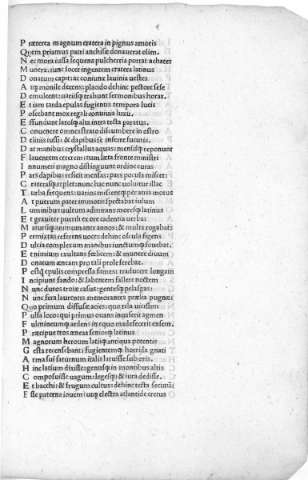 Præterea magnum cratera in pignus amoris
Quem priamus patri anchisæ donauerat olim.
Nec mora iussa sequens pulcherria portat achates
Munera. tunc socer ingentem cratera latinus
Donatum capit: at coniunx lauinia uestes
At monile decens: placido dehinc pectore sese
Demulcent: uariisque trahunt sermonibus horas.
Et iam tarda epulas fugientis tempora lucis
Poscebant mox regali conuiuia luxu.
Effundunt latosque alta intra tecta paratus.
Conuenere omnes strato discumbere in ostro
Delitiis iussi: & dapibus se inferre futuris.
Dat manibus crystallus aquas: mensisque reponunt
Flauentem cererem: tum læta fronte ministri
Innumeri magno distinguunt ordine curas
Pars dapibus reficit mensas: pars pocula miscet:
Crateras replet: nunc hac nunc uoluitur illac
Turba frequens: uarios miscentque per atria motus
At puerum pater immotis spectabat iulum
Luminibus uultum admirans moresque latinus
Et grauiter puerili ex ore cadentia uerba:
Maturisque animum ante annos: & multa rogabat
Permixtas referens uoces: dehinc oscula figens
Dulcia complexum manibus iunctumque fouebat.
Et nimium exultans felicem: & munere diuum
Donatum æneam pro tali prole ferebat.
Postque epulis compressa fames: traducere longam
Incipiunt fando: & labentem fallere noctem
Nunc duros troiæ casus: gentesque pelasgas
Nunc fera laurentis memorantes prælia pugnæ
Quo primum diffusæ acies: quo tela uicissim
Pulsa loco: qui primus ouans inuaserit agmen
Fulmineumque ardens in equo madefecerit ensem.
Præcipue tros æneas seniorque latinus
Magnorum heroum latiique antiqua potentis
Gesta recensebant: fugientemque horrida gnati
Arma sui saturnum italis latuisse sub oris.
Hinc latium dixisse: gentesque in montibus altis
Composuisse uagum: legesque & iura dedisse.
Et bacchi & frugum cultus: dehinc tecta secundum
Esse paterna iouem: utque electra atlantide cretus